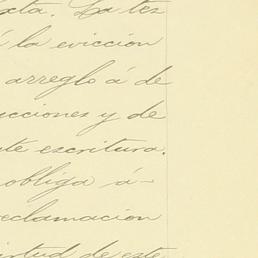 xta. La tes
á la evicción
arreglo á de
ucciones y de
te escritura.
obliga á-
reclamación
irtud de este